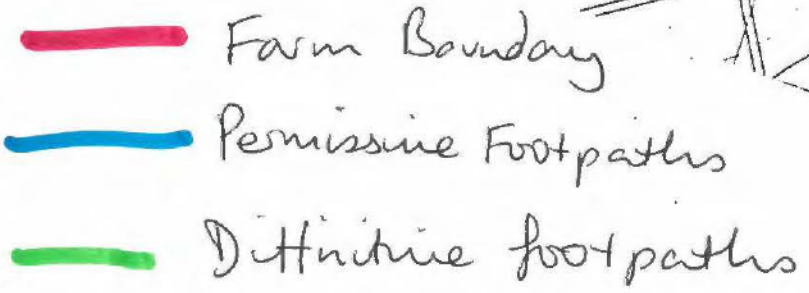 Farm Boundary
Permissive Footpaths
Diffinitive footpaths